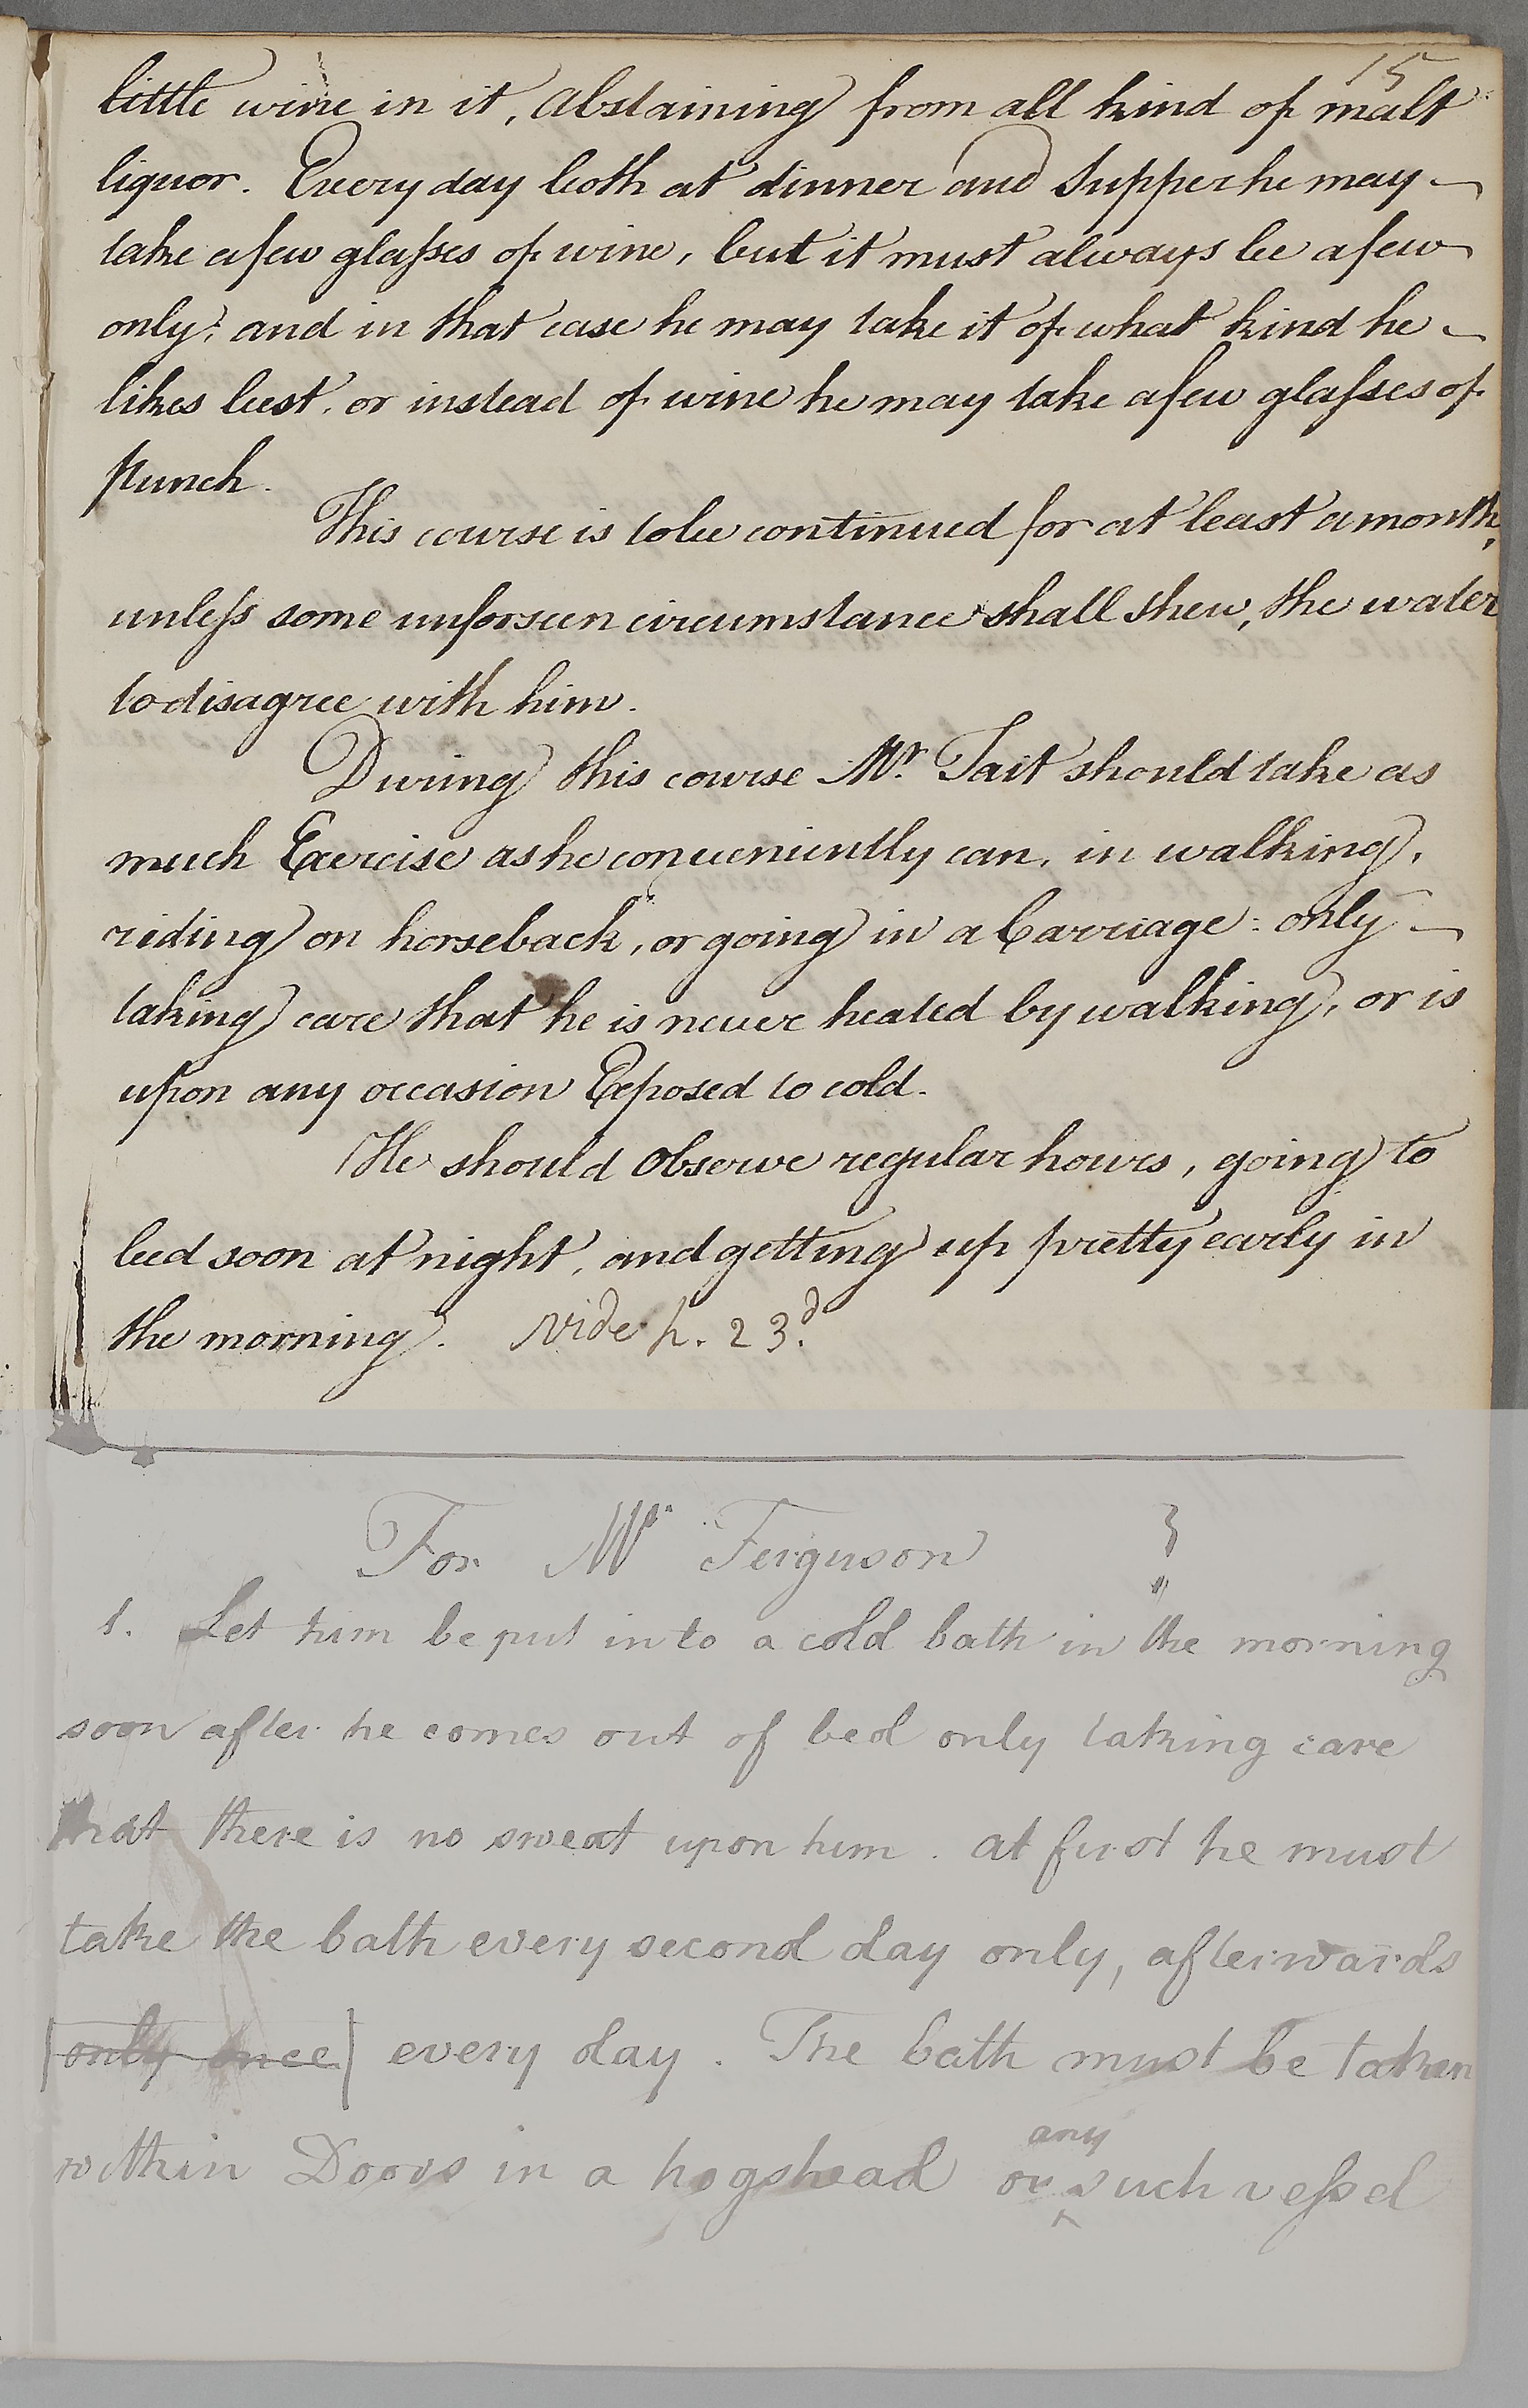 15
little wine in it, abstaining from all kind of malt
liquor. Every day both at dinner and Supper he may
take a few glasses of wine, but it must always be a few
only; and in that case he may take it of what kind he
likes best, or instead of wine he may take a few glasses of
punch.
This course is to be continued for at least a month,
unless some unforseen circumstance shall shew, the water
to disagree with him.
During this course Mr. Tait should take as
much Exercise as he conveniently can, in walking,
riding on horseback, or going in a Carriage: only
taking care that he is never heated by walking, or is
upon any occasion Exposed to cold.
He should Observe regular hours, going to
bed soon at night, and getting up pretty early in
the morning. Vide p. 23d.
For Mr Ferguson
1. Let him be put into a cold bath in the morning
soon after he comes out of bed only taking care
that there is no sweat upon him. at first he must
take the bath every second day only, afterwards
only once every day. The bath must be taken
within Doors in a hogshead or any such vessel